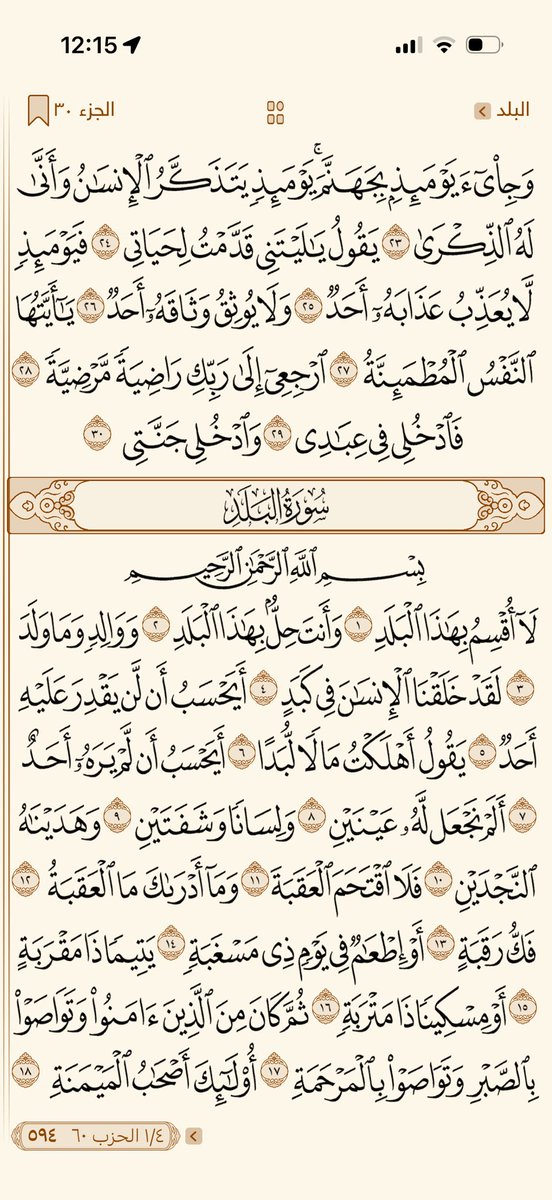 12:15
البلد
الجزء ٣٠
وَجِاْىٓءَ يَوْمَئِذِۭ بِجَهَنَّمَۚ يَوْمَئِذٖ يَتَذَكَّرُ ٱلْإِنسَٰنُ وَأَنَّىٰ
لَهُ ٱلذِّكْرَىٰ ٢٣ يَقُولُ يَٰلَيْتَنِى قَدَّمْتُ لِحَيَاتِى ٢٤ فَيَوْمَئِذٖ
لَّا يُعَذِّبُ عَذَابَهُۥٓ أَحَدٞ ٢٥ وَلَا يُوثِقُ وَثَاقَهُۥٓ أَحَدٞ ٢٦ يَٰٓأَيَّتُهَا
ٱلنَّفْسُ ٱلْمُطْمَئِنَّةُ ٢٧ ٱرْجِعِىٓ إِلَىٰ رَبِّكِ رَاضِيَةٗ مَّرْضِيَّةٗ ٢٨
فَٱدْخُلِى فِى عِبَٰدِى ٢٩ وَٱدْخُلِى جَنَّتِى ٣٠
سُورَةُ البَلَدِ
بِسْمِ ٱللَّهِ ٱلرَّحْمَٰنِ ٱلرَّحِيمِ
لَآ أُقْسِمُ بِهَٰذَا ٱلْبَلَدِ ١ وَأَنتَ حِلُّۢ بِهَٰذَا ٱلْبَلَدِ ٢ وَوَالِدٖ وَمَا وَلَدَ
٣ لَقَدْ خَلَقْنَا ٱلْإِنسَٰنَ فِى كَبَدٍ ٤ أَيَحْسَبُ أَن لَّن يَقْدِرَ عَلَيْهِ
أَحَدٞ ٥ يَقُولُ أَهْلَكْتُ مَالٗا لُّبَدًا ٦ أَيَحْسَبُ أَن لَّمْ يَرَهُۥٓ أَحَدٌ
٧ أَلَمْ نَجْعَل لَّهُۥ عَيْنَيْنِ ٨ وَلِسَانٗا وَشَفَتَيْنِ ٩ وَهَدَيْنَٰهُ
ٱلنَّجْدَيْنِ ١٠ فَلَا ٱقْتَحَمَ ٱلْعَقَبَةَ ١١ وَمَآ أَدْرَىٰكَ مَا ٱلْعَقَبَةُ ١٢
فَكُّ رَقَبَةٍ ١٣ أَوْ إِطْعَٰمٞ فِى يَوْمٖ ذِى مَسْغَبَةٖ ١٤ يَتِيمٗا ذَا مَقْرَبَةٍ
١٥ أَوْ مِسْكِينٗا ذَا مَتْرَبَةٖ ١٦ ثُمَّ كَانَ مِنَ ٱلَّذِينَ ءَامَنُواْ وَتَوَاصَوْاْ
بِٱلصَّبْرِ وَتَوَاصَوْاْ بِٱلْمَرْحَمَةِ ١٧ أُوْلَٰٓئِكَ أَصْحَٰبُ ٱلْمَيْمَنَةِ ١٨
١/٤ الحزب ٦٠ ٥٩٤